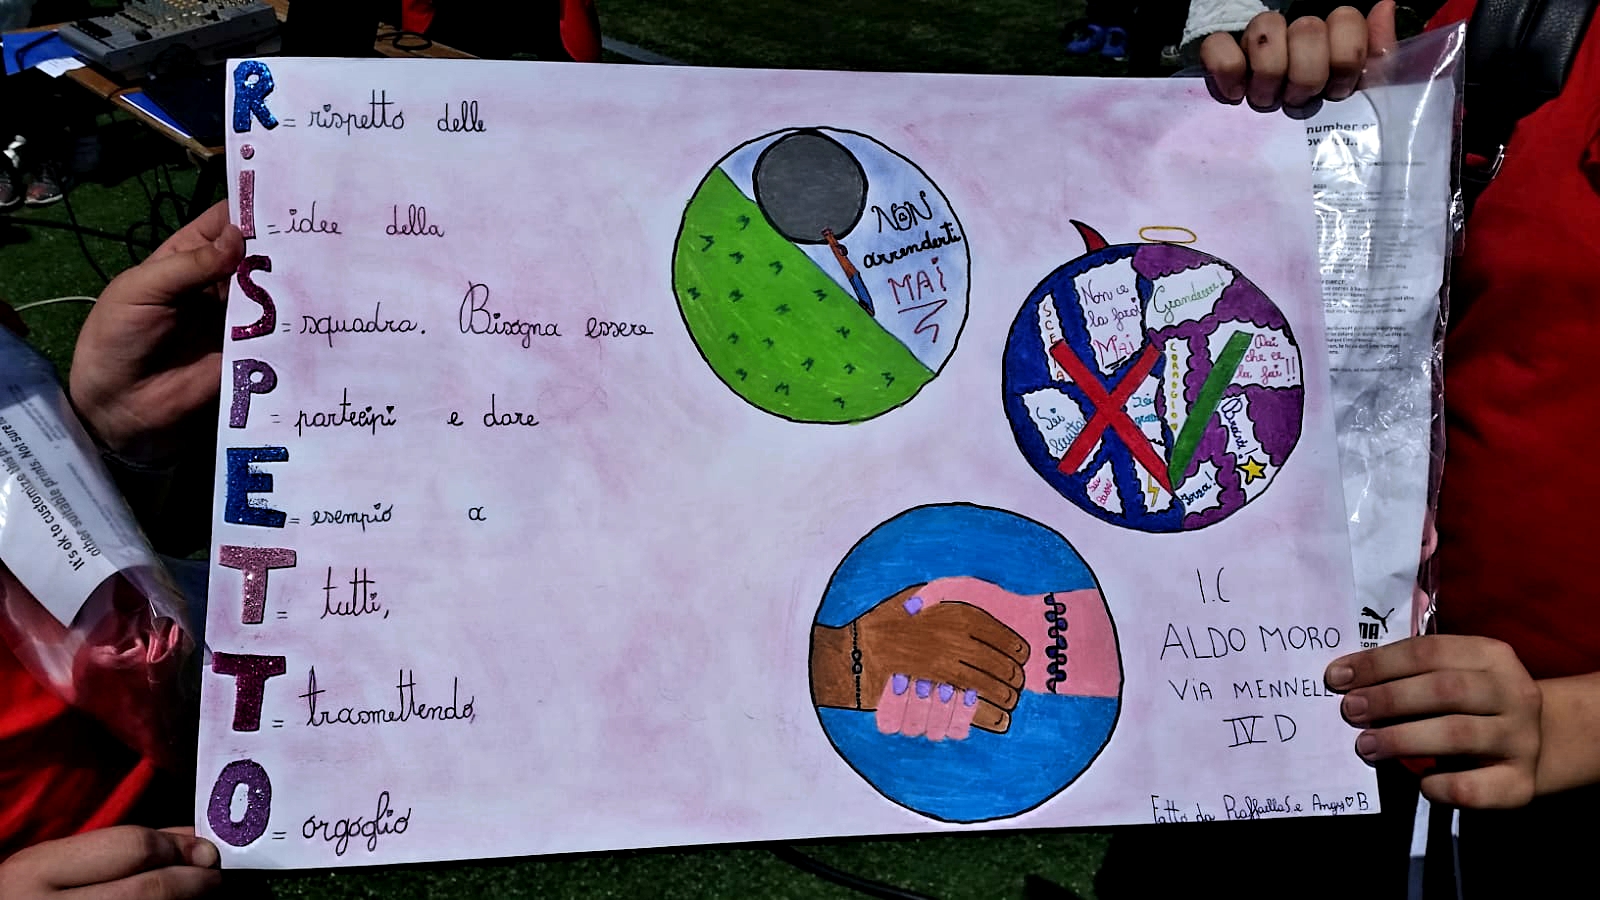 R = rispetto delle
I = idee della
S = squadra. Bisogna essere
P = partecipi e dare
E = esempio a
T = tutti,
T = trasmettendo
O = orgoglio
NON
arrenderti
MAI
SCEMA
Non ce
la farai
MAI
Grandeeee!
Dai
che ce
la fai!!
CORAGGIO
Sei
brutta
Sei
Bravo!
Forza!
I.C
ALDO MORO
VIA MENNELL
IV D
Fatto da Raffaella S. e Angy ♡ B
It's ok to customize this pr
other suitable prints. Not sure
number or
PUMA
.com